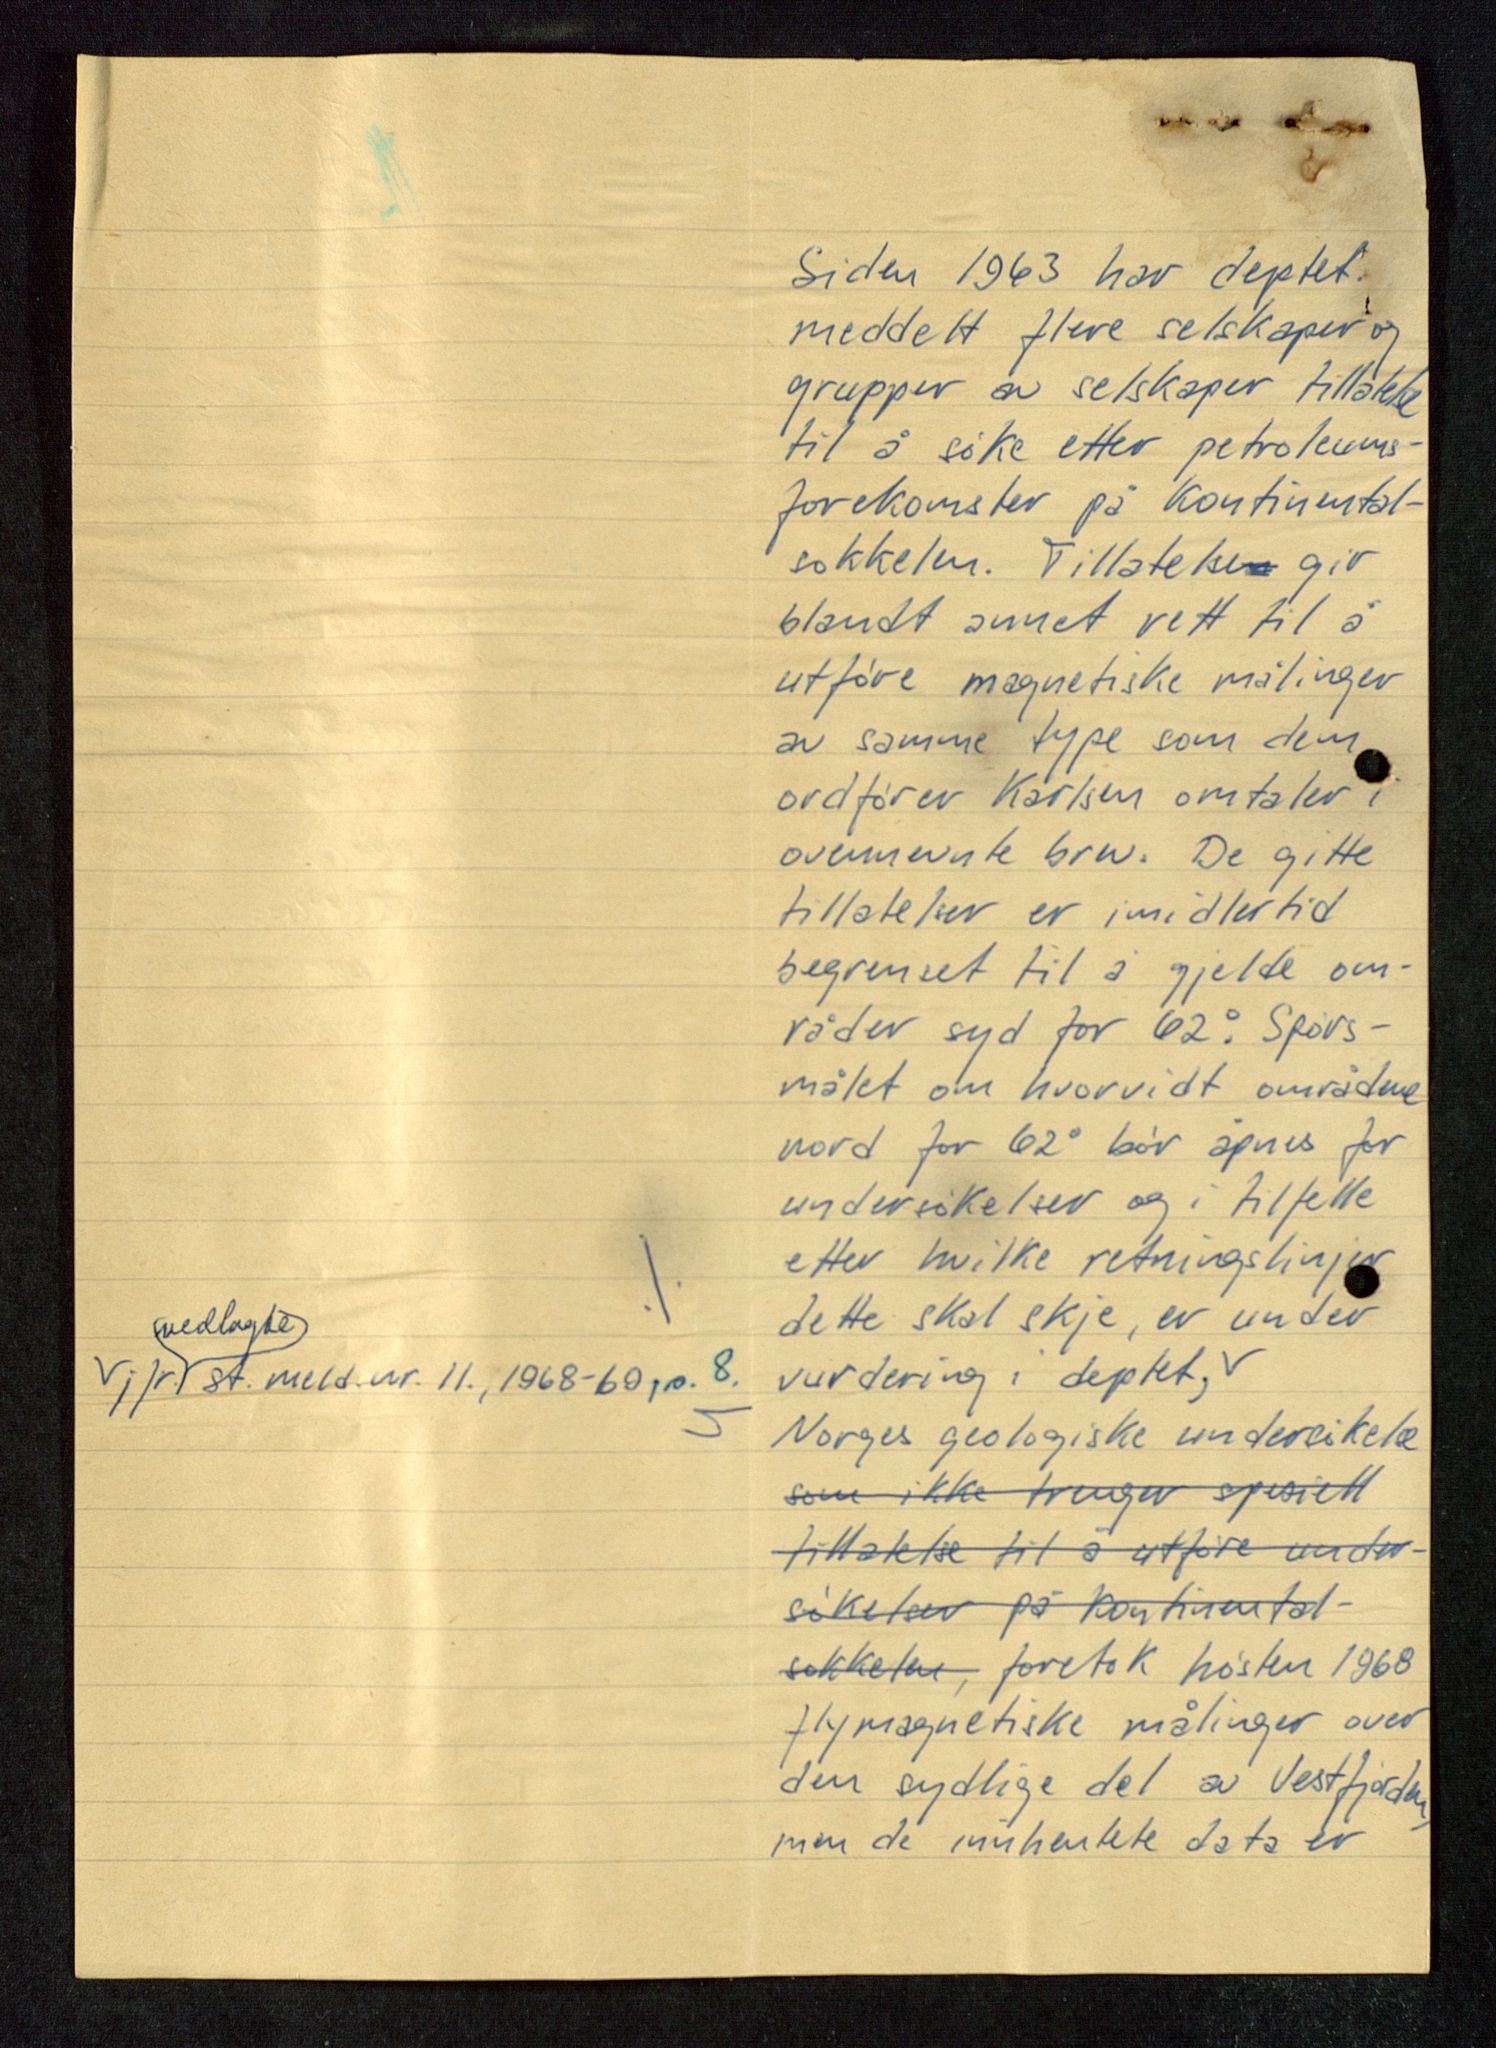 Siden 1963 har deptet.
meddelt flere selskaper og
grupper av selskaper tillatelse
til å søke etter petroleums-
forekomster på kontinental-
sokkelen. Tillatelsen gir
blandt annet rett til å
utføre magnetiske målinger
av samme type som dem
ordfører Karlsen omtaler i
ovennevnte brev. De gitte
tillatelser er imidlertid
begrenset til å gjelde om-
råder syd for 62°. Spørs-
målet om hvorvidt områdene
nord for 62° bør åpnes for
undersøkelser og i tilfelle
etter hvilke retningslinjer
dette skal skje, er under
./.
vedlagte
V jfr. st. meld. nr. 11., 1968-69, p. 8.
vurdering i deptet, V
Norges geologiske undersøkelse
som ikke trenger spesiell
tillatelse til å utføre under-
søkelser på kontinental-
sokkelen, foretok høsten 1968
flymagnetiske målinger over
den sydlige del av Vestfjorden,
men de innhentete data er